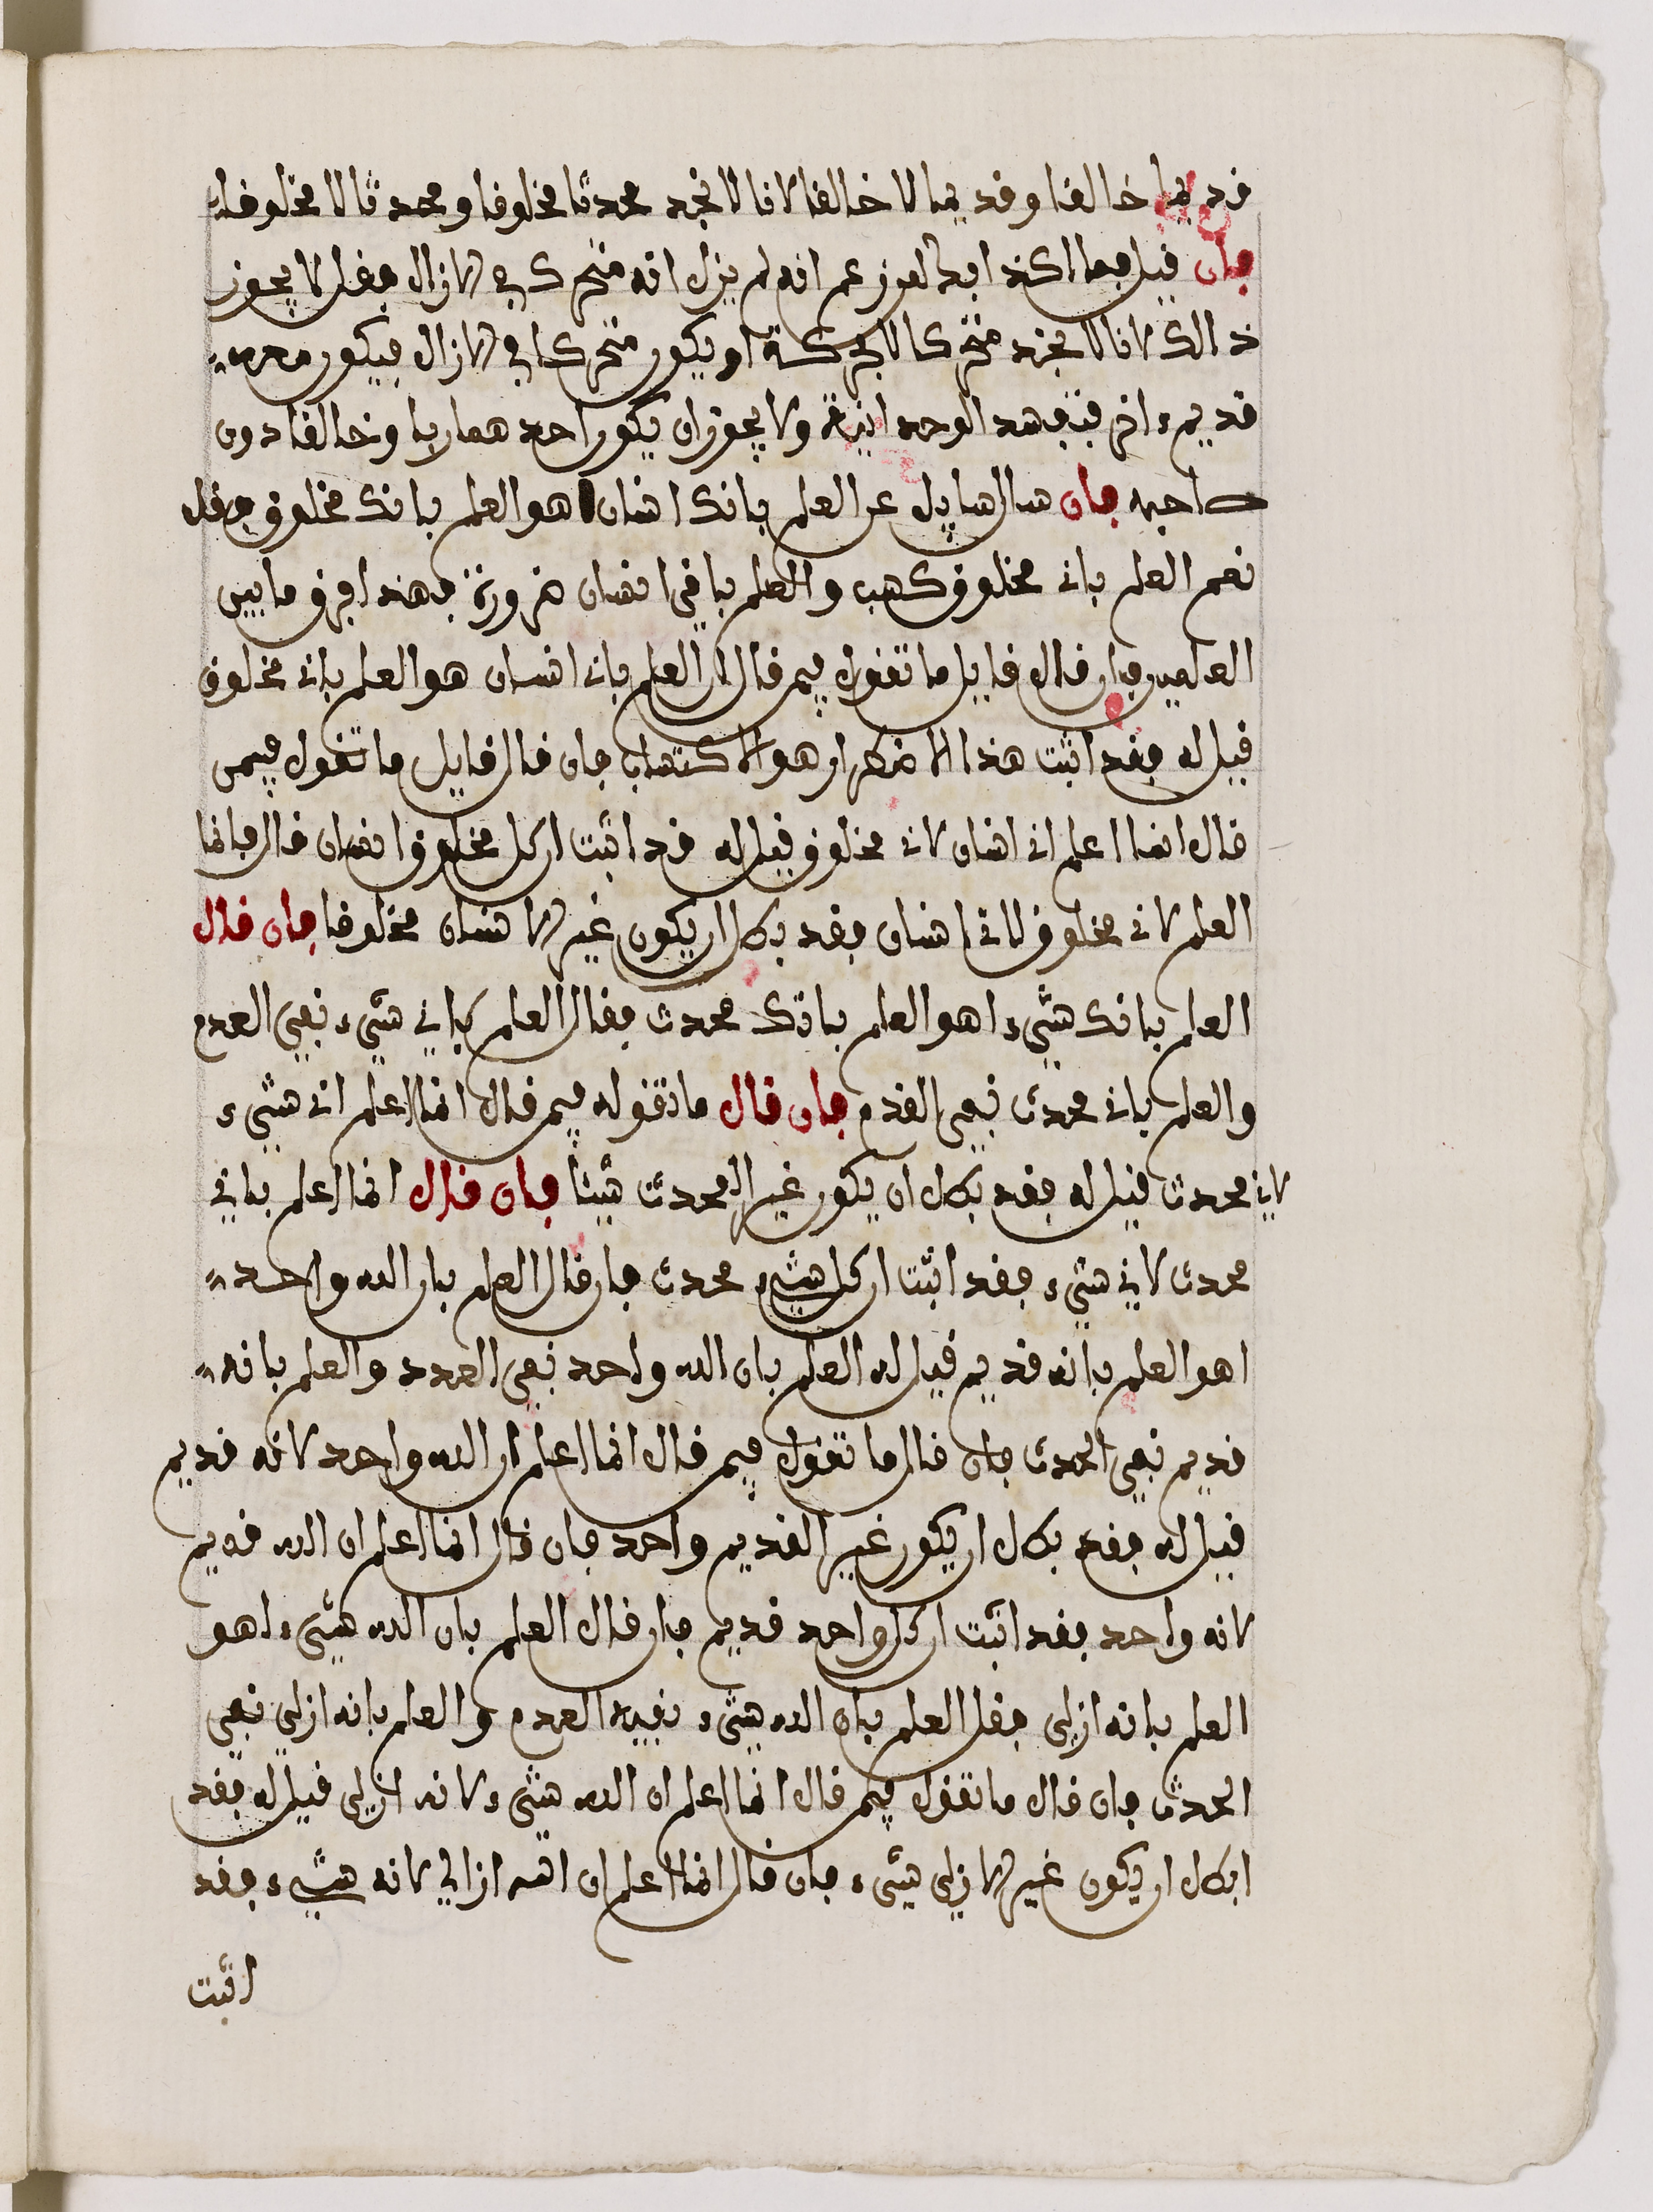 قديما خالقا وقديما لا خالقا لانا لا نجد محدثا مخلوقا ومحدثا لا مخلوقا
فان قيل فما اكذابه لمن زعم انه لم يزل انه متحرك في الازال فقل لا يجوز
ذالك لانا لا نجد متحركا لا بحركة او يكون متحركا في الازال فيكون معه
قديم ءاخر فتفسد الوحدانية ولا يجوز ان يكون احدهما ربا وخالقا دون
صاحبه فان سال سايل عن العلم بانك انسان اهو العلم بانك مخلوق فقل
نعم العلم باني مخلوق كسب والعلم باني انسان ضرورة فهذا فرق ما بين
العلمين فان قال قايل ما تقول فيمن قال ان العلم باني انسان هو العلم باني مخلوق
قيل له فقد اثبت هذا الاضطرار هو الاكتساب فان قال قايل ما تقول فيمن
قال انما اعلم اني انسان لاني مخلوق قيل له قد اثبت ان كل مخلوق انسان قال فانما
العلم لاني مخلوق لاني انسان فقد بطل ان يكون غير الانسان مخلوقا فان قال
العلم بانك شيء اهو العلم بانك محدث فقال العلم باني شيء نفي العدم
والعلم باني محدث نفي القدم فان قال ما تقوله فيمن قال انما اعلم اني شيء
لاني محدث قيل له فقد بطل ان يكون غير المحدث شيئا فان قال انما اعلم باني
محدث لاني شيء فقد اثبت ان كل شيء محدث فان قال العلم بان الله واحد
اهو العلم بانه قديم قيل له العلم بان الله واحد نفي العدد والعلم بانه
قديم نفي الحدث فان قال ما تقول فيمن قال انما اعلم ان الله واحد لانه قديم
قيل له فقد بطل ان يكون غير القديم واحد فان قال انما اعلم ان الله قديم
لانه واحد فقد اثبت ان كل واحد قديم فان قال العلم بان الله شيء اهو
العلم بانه ازلي فقل العلم بان الله شيء نفيه العدم والعلم بانه ازلي نفي
الحدث فان قال ما تقول فيمن قال انما اعلم ان الله شيء لانه ازلي قيل له فقد
ابطل ان يكون غير الازلي شيء فان قال انما اعلم ان الله ازالي لانه شيء فقد
اثبت